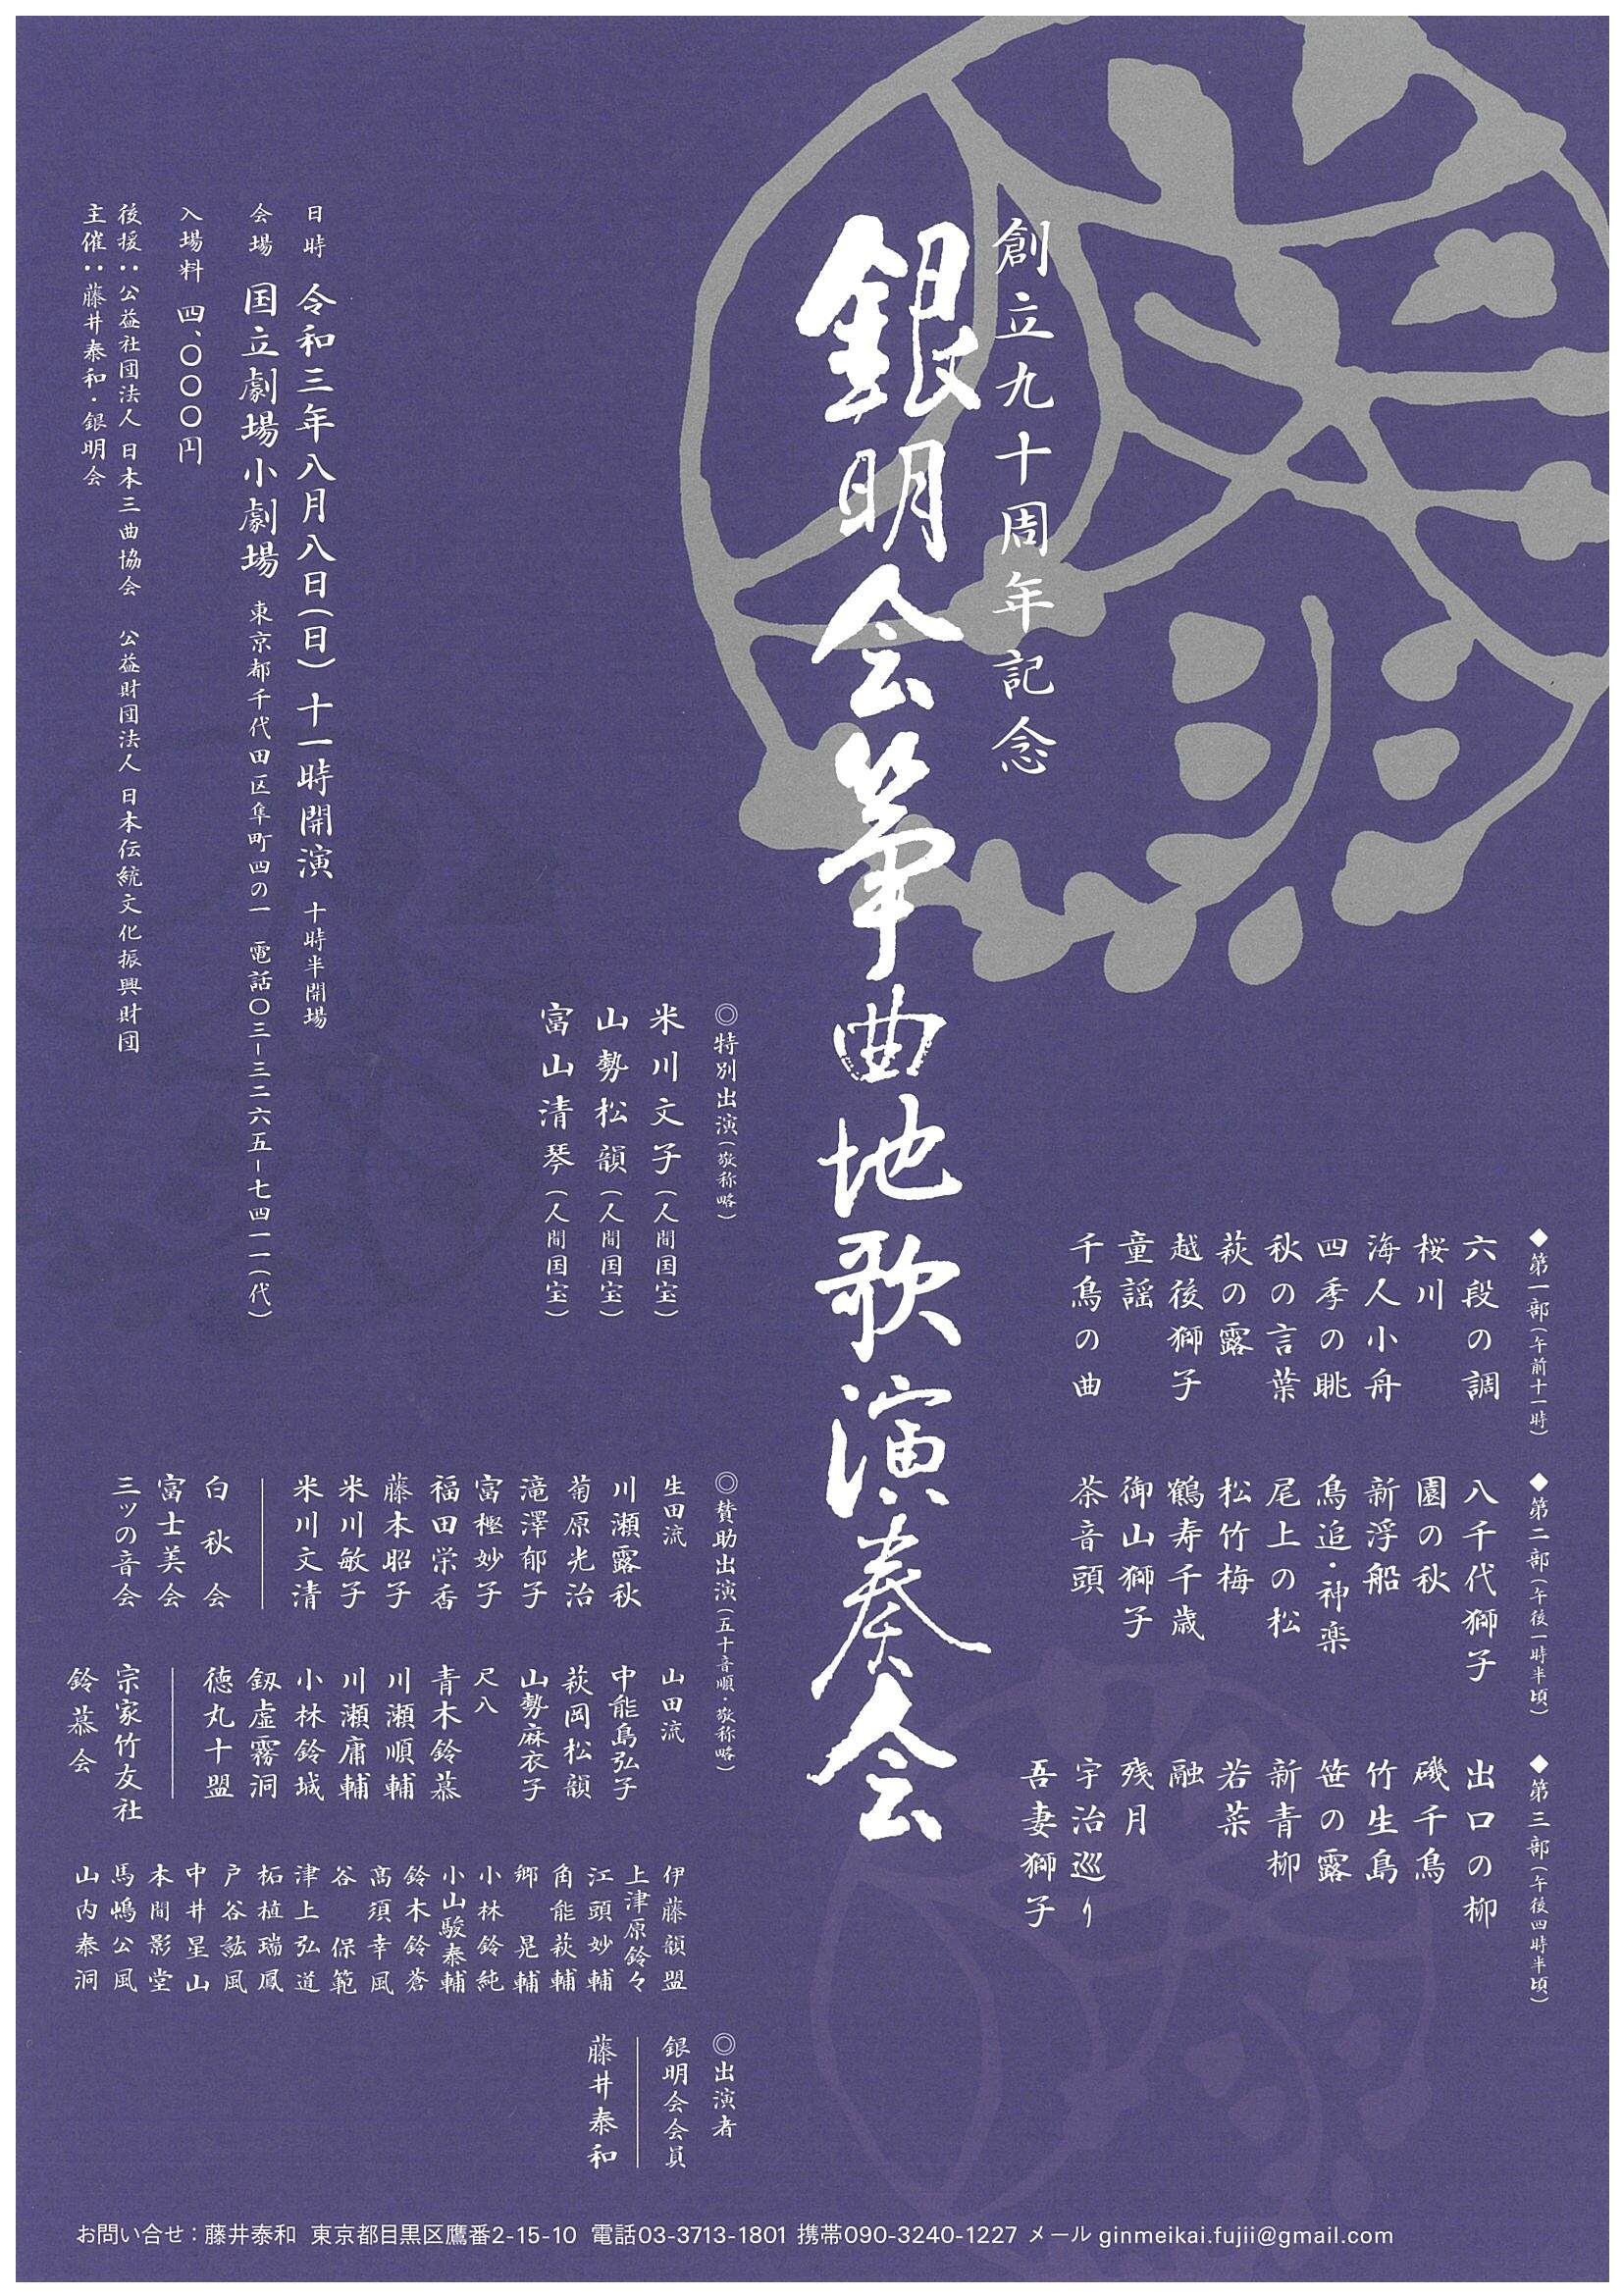 ◆第一部（午前十一時）
六段の調
桜川
海人小舟
四季の眺
秋の言葉
萩の露
越後獅子
童謡
千鳥の曲
◆第二部（午後一時半頃）
八千代獅子
園の秋
新浮船
鳥追・神楽
尾上の松
松竹梅
鶴寿千歳
御山獅子
茶音頭
◆第三部（午後四時半頃）
出口の柳
磯千鳥
竹生島
笹の露
新青柳
若菜
融
残月
宇治巡り
吾妻獅子
創立九十周年記念
銀明会箏曲地歌演奏会
◎特別出演（敬称略）
米川文子（人間国宝）
山勢松韻（人間国宝）
富山清琴（人間国宝）
◎賛助出演（五十音順・敬称略）
生田流
川瀬露秋
菊原光治
滝澤郁子
富樫妙子
福田栄香
藤本昭子
米川敏子
米川文清
白秋会
富士美会
三ツの音会
山田流
中能島弘子
萩岡松韻
山勢麻衣子
尺八
青木鈴慕
川瀬順輔
川瀬庸輔
小林鈴城
釼虚霧洞
徳丸十盟
宗家竹友社
鈴慕会
伊藤韻盟
上津原鈴々
江頭妙輔
角能萩輔
郷晃輔
小林鈴純
小山駿泰輔
鈴木鈴蒼
高須幸風
谷保範
津上弘道
柘植瑞鳳
戸谷誌風
中井星山
本間影堂
馬嶋公風
山内泰洞
◎出演者
銀明会会員
藤井泰和
日時 令和三年八月八日（日）十一時開演 十時半開場
会場 国立劇場小劇場 東京都千代田区隼町四の一 電話〇三−三二六五−七四一一（代）
入場料 四、〇〇〇円
後援：公益社団法人 日本三曲協会 公益財団法人 日本伝統文化振興財団
主催：藤井泰和・銀明会
お問い合せ：藤井泰和 東京都目黒区鷹番2-15-10 電話03-3713-1801 携帯090-3240-1227 メール ginmeikai.fujii@gmail.com